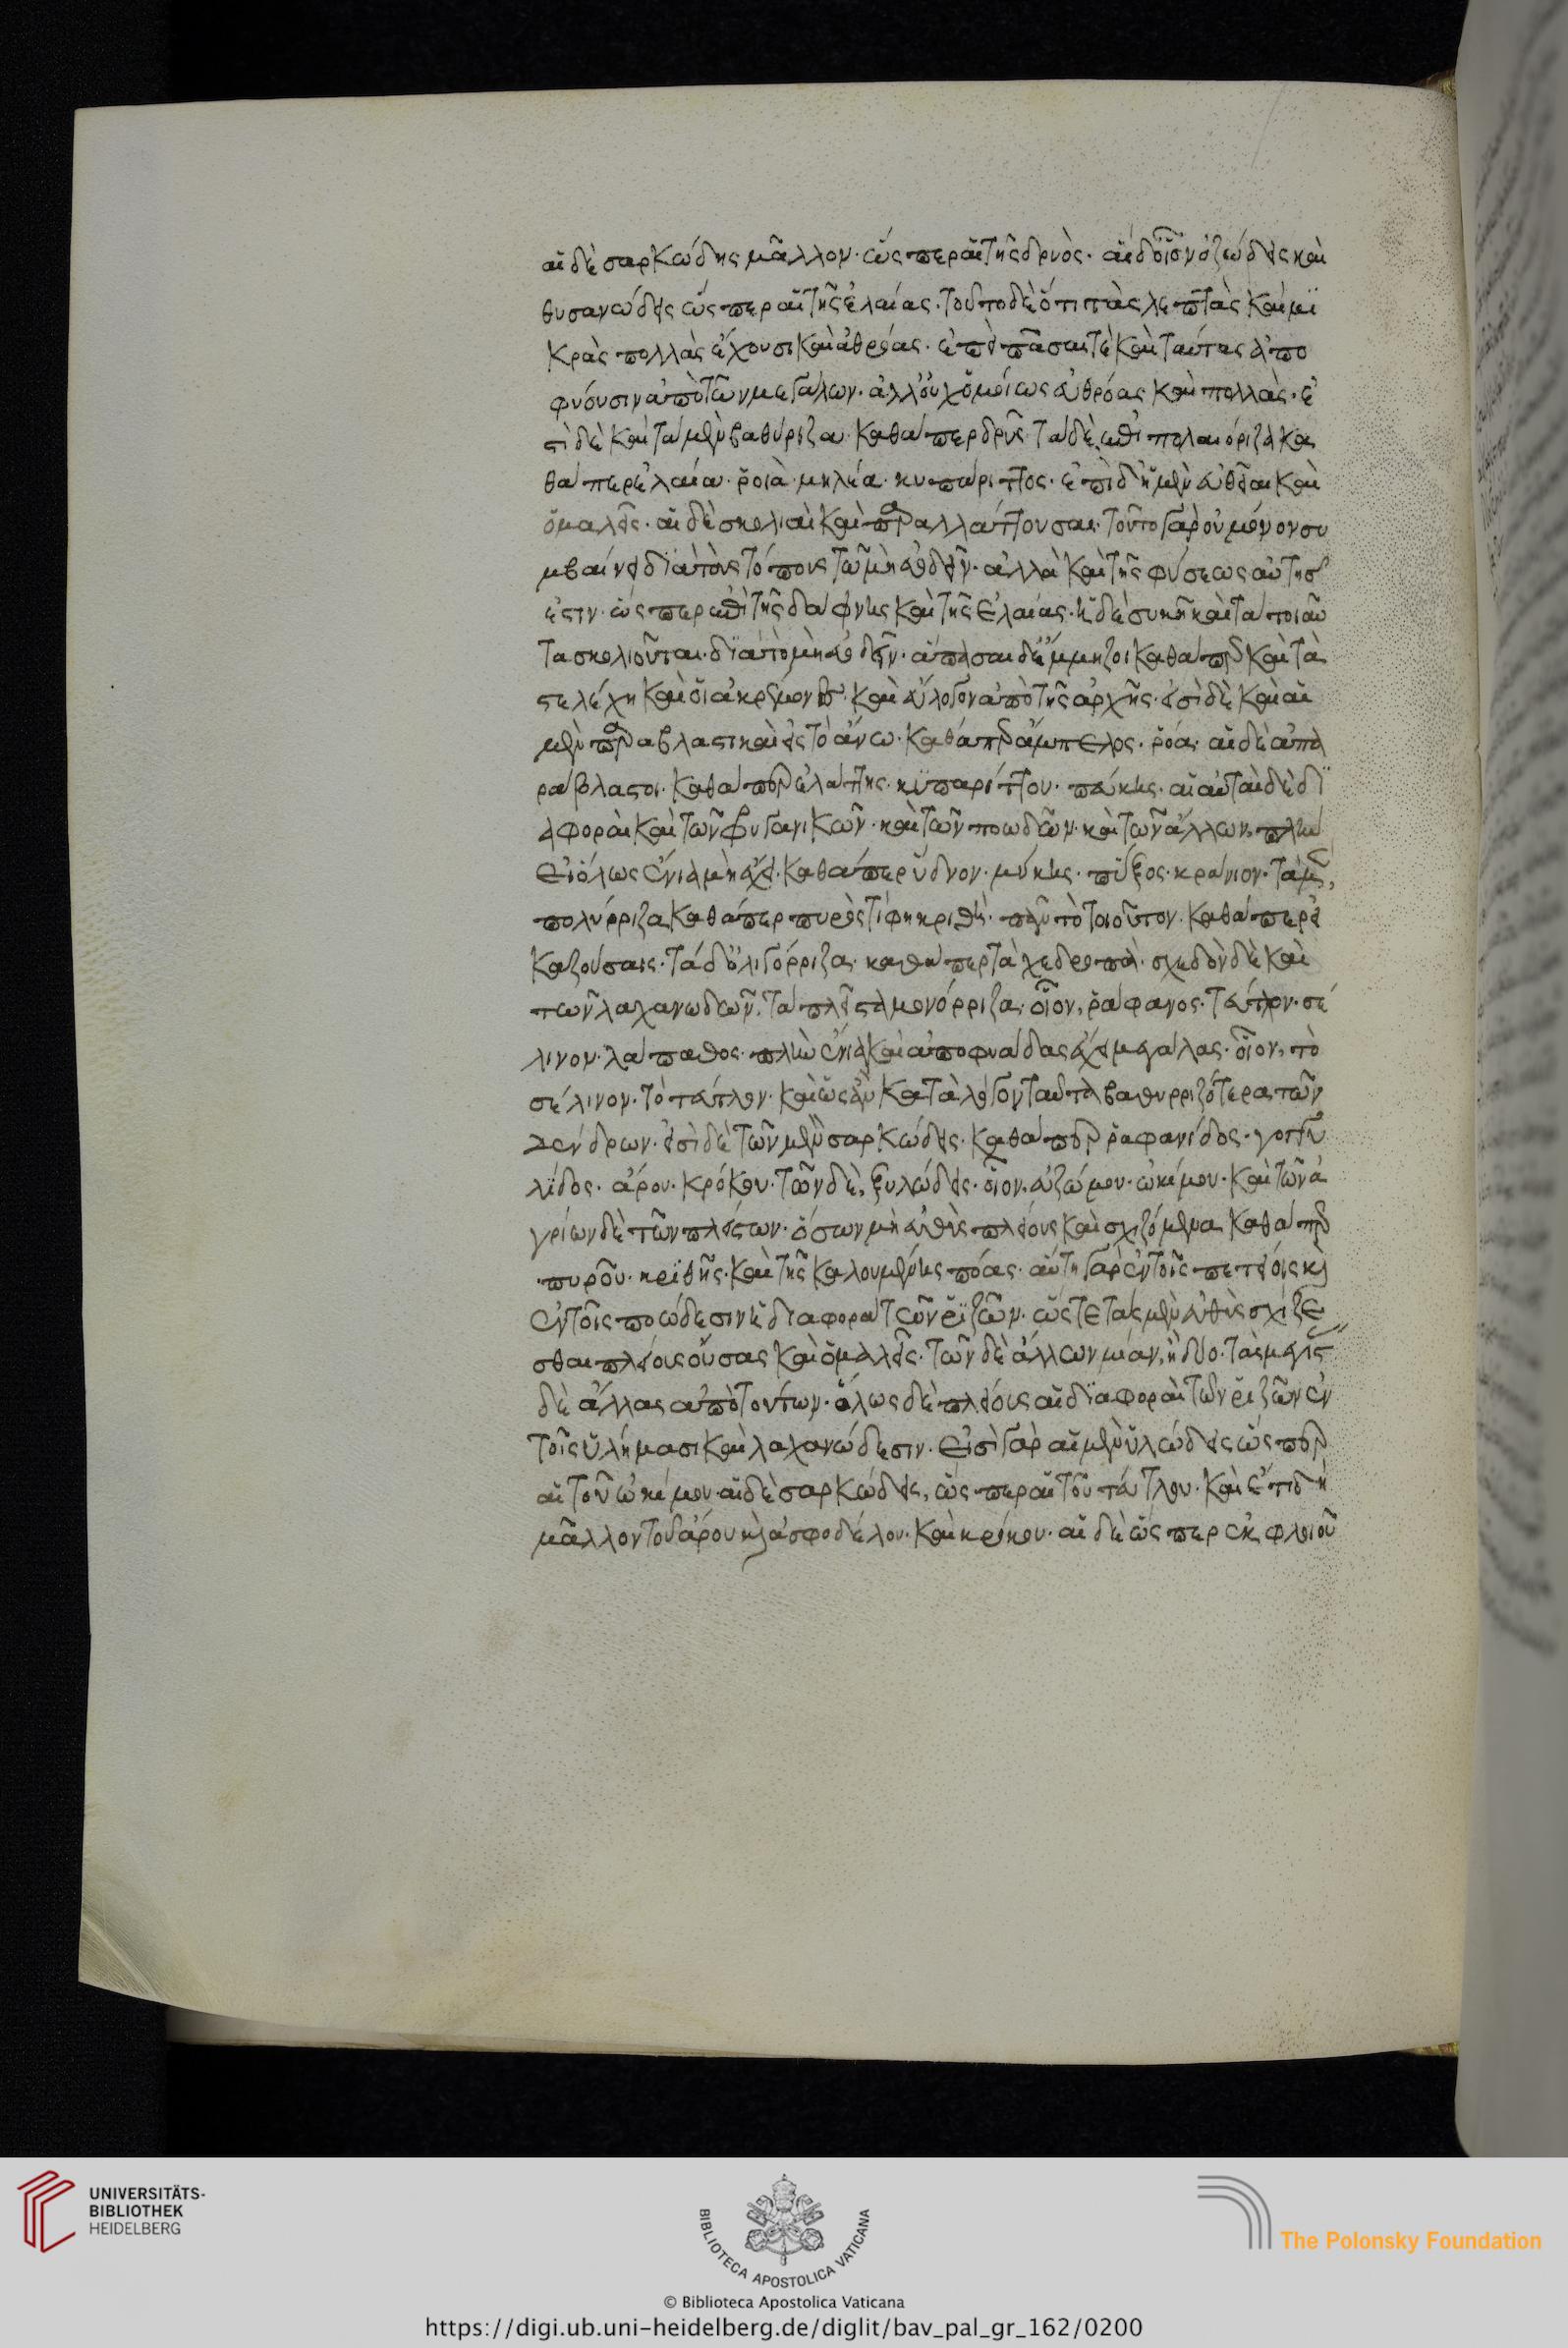 αἱ δὲ σαρκώδης μᾶλλον· ὥς περ αἱ τῆς δρυὸς· αἱ δ' οἷον ὀζώδεις καὶ
θυσανώδεις ὥς περ αἱ τῆς ἐλαίας. τοῦτο δὲ ὅτι τὰς λεπτὰς καὶ μι
κρὰς πολλὰς ἔχουσι καὶ ἀθρόας. ἐπεὶ πᾶσαι τὲ καὶ ταύτας ἀπο
φύουσιν ἀπὸ τῶν μεγάλων. ἀλλ' οὐχ ὁμοίως ἀθρόας καὶ πολλὰς· ἔ
τι δὲ καὶ τὰ μὲν βαθύριζα καθάπερ δρῦς· τὰ δὲ ἐπιπολαιόριζα κα
θάπερ ἐλαία· ῥοιὰ· μηλέα· κυπάριττος· ἔτι δὲ αἱ μὲν εὐθεῖαι καὶ
ὁμαλεῖς. αἱ δὲ σκολιαὶ καὶ παραλλάττουσαι· τοῦτο γὰρ οὐ μόνον συ
μβαίνει διὰ τοὺς τόπους τῶ μὴ εὐοδεῖν. ἀλλὰ καὶ τῆς φύσεως αὐτῆς
ἐστιν· ὥς περ ἐπὶ τῆς δάφνης καὶ τῆς ἐλαίας· ἡ δὲ συκῆ καὶ τὰ τοιαῦ
τα σκολιοῦται· διὰ τὸ μὴ εὐοδεῖν. ἅπασαι δ' ἔμμητροι καθάπερ καὶ τὰ
στελέχη καὶ οἱ ἀκρεμόνες· καὶ εὔλογον ἀπὸ τῆς ἀρχῆς· εἰσὶ δὲ καὶ αἱ
μὲν παραβλαστικαὶ εἰς τὸ ἄνω· καθάπερ ἄμπελος. ῥόα· αἱ δὲ ἀπα
ράβλαστοι· καθάπερ ἐλάτης· κυπαρίττου· πεύκης. αἱ αὐταὶ δὲ δι
αφοραὶ καὶ τῶν φρυγανικῶν· καὶ τῶν ποωδῶν· καὶ τῶν ἄλλων. πλὴν
εἰ ὅλως ἔνια μὴ ἔχει· καθάπερ ὕδνον· μύκης· πύξος· κράνιον· τὰ μὲν,
πολύρριζα καθάπερ πυρὸς τίφη κριθὴ. πᾶν τὸ τοιοῦτον· καθάπερ εἰ
καζούσαις· τὰ δ' ὀλιγόρριζα· καθάπερ τὰ χεδροπὰ· σχεδὸν δὲ καὶ
τῶν λαχανωδῶν, τὰ πλεῖστα μονόρριζα· οἷον, ῥάφανος· τεύτλον· σέ
λινον· λάπαθος· πλὴν ἔνια καὶ ἀποφυάδας ἔχει μεγάλας· οἷον, τὸ
σέλινον. τὸ τεύτλον· καὶ ὡς ἂν κατὰ λόγον ταῦτα βαθυρριζότερα τῶν
δένδρων. εἰσὶ δὲ τῶν μὲν σαρκώδεις· καθάπερ ῥαφανίδος· γογγυ
λίδος· ἄρου· κρόκου· τῶν δὲ, ξυλώδεις· οἷον, εὐζώμου· ὠκίμου· καὶ τῶν ἀ
γρίων δὲ τῶν πλείστων· ὅσων μὴ εὐθὺς πλείους καὶ σχιζόμεναι καθάπερ
πυροῦ· κριθῆς· καὶ τῆς καλουμένης πόας· αὕτη γὰρ ἐν τοῖς πετείοις καὶ
ἐν τοῖς ποώδεσιν ἡ διαφορὰ τῶν ῥιζῶν. ὥστε τὰς μὲν εὐθὺς σχίζε
σθαι πλείους οὔσας καὶ ὁμαλεῖς· τῶν δὲ ἄλλων μίαν, ἢ δύο· τὰς μεγίς
δὲ ἄλλας ἀπὸ τούτων· ὅλως δὲ πλείους αἱ διαφοραὶ τῶν ῥιζῶν ἐν
τοῖς ὑλήμασι καὶ λαχανώδεσιν. εἰσὶ γὰρ αἱ μὲν ὑλώδεις ὥς περ
αἱ τοῦ ὠκίμου· αἱ δὲ σαρκώδεις, ὥς περ αἱ τοῦ τεύτλου· καὶ ἔτι δὴ
μᾶλλον τοῦ ἄρου καὶ ἀσφοδέλου· καὶ κρόκου· αἱ δὲ ὥς περ ἐκ φλοιοῦ
UNIVERSITÄTS-
BIBLIOTHEK
HEIDELBERG
BIBLIOTECA APOSTOLICA VATICANA
The Polonsky Foundation
© Biblioteca Apostolica Vaticana
https://digi.ub.uni-heidelberg.de/diglit/bav_pal_gr_162/0200